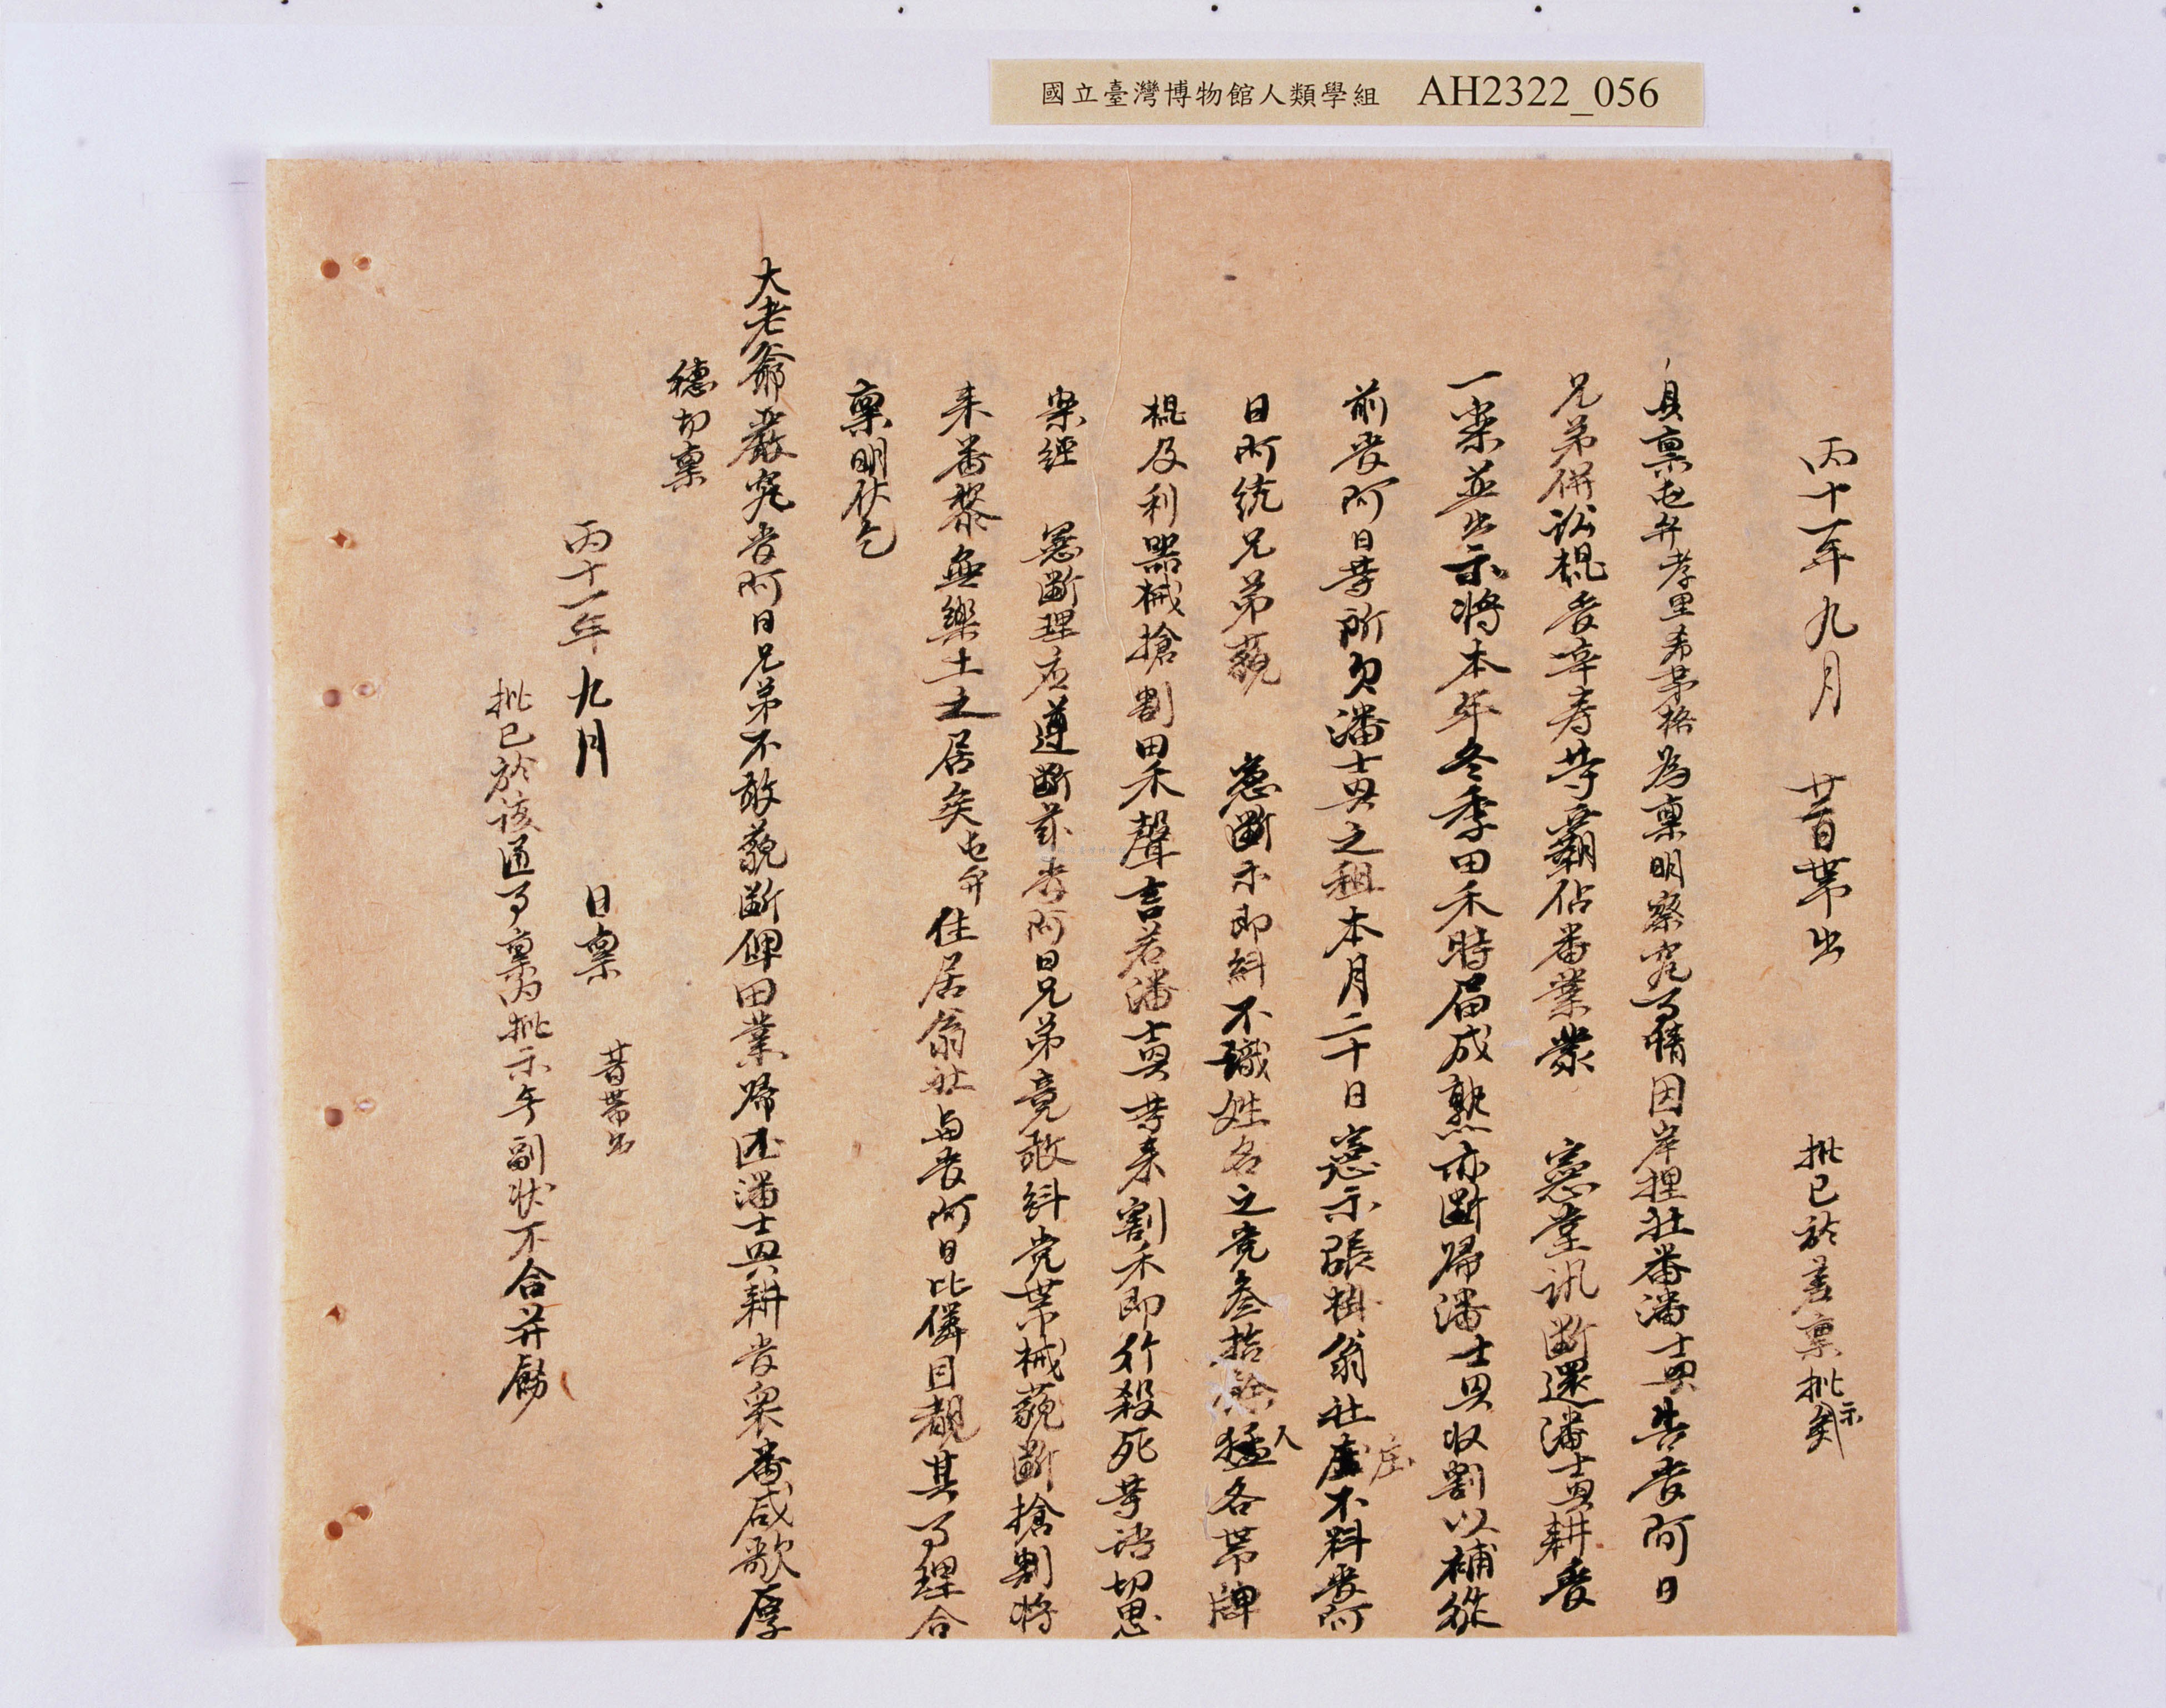 國立臺灣博物館人類學組 AH2322_056
丙十一年九月 廿一日帶出 批已於差稟批示矣
具稟屯弁孝里希茅格為稟明察究事情因岸裡社番潘士興告麥阿日
兄弟併訟棍麥辛壽等霸佔番業蒙 憲堂訊斷還潘士興耕麥
一案並出示將本年冬季田禾時届成熟亦断歸潘士興收割以補從
前麥阿日等所欠潘士興之租本月二十日憲示張掛翁社庄不料麥阿
日所統兄弟藐 憲斷示即糾不識姓名之党叁拾餘猛人各帶牌
棍及利器械搶割田禾聲言若潘士興等来割禾即行殺死等語切思
案經 憲斷理应遵斷茲麥阿日兄弟竟敢糾党帶械藐斷搶割將
来番黎無樂土之居矣屯弁住居翁社与麥阿日比隣目覩其事理合
稟明伏乞
大老爺嚴究麥阿日兄弟不敢藐断俾田業歸還潘士興耕麥衆番咸歌厚
德切稟
丙十一年 九月 日稟 廿一日帶出
批已於該通事稟內批示矣副狀不合并飭